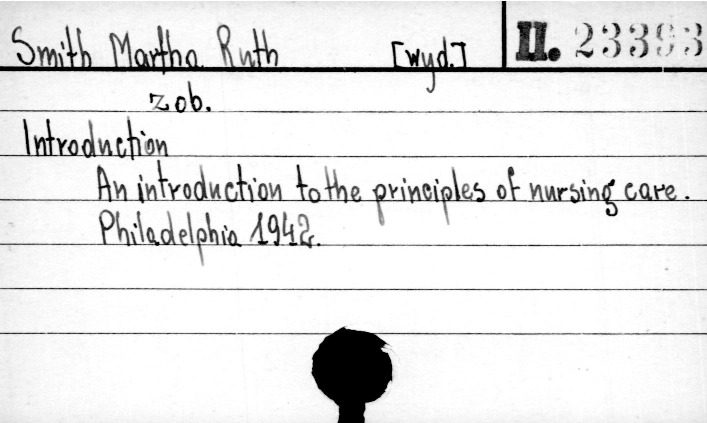 Smith Martha Ruth [wyd.] II. 23393
zob.
Introduction
An introduction to the principles of nursing care.
Philadelphia 1942.